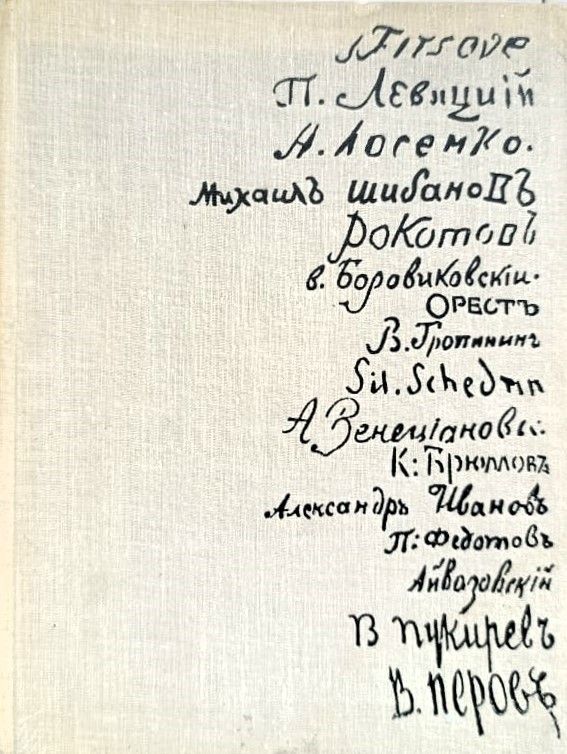 J Firsove
П. Левицкій
А. Лосенко.
Михаилъ Шибановъ
Рокотовъ
в. Боровиковскіи.
Орестъ
В. Тропинин
Sil. Schedrin
А Венеціановъ.
К: Брюлловъ
Александръ Ивановъ
П: Федотовъ
Айвазовскій
В Пукиревъ
В. Перовъ